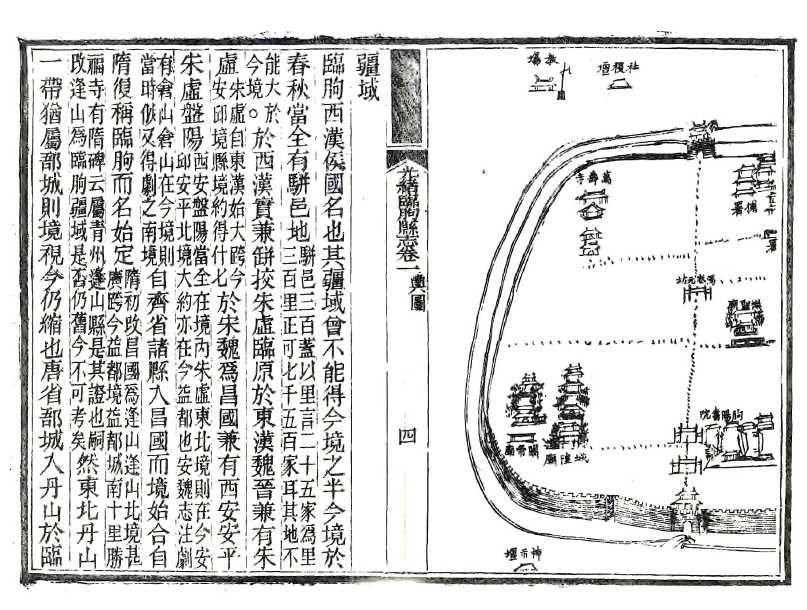 社稷壇
教場
萬壽寺
捕署
朐陽書院
城隍廟
關帝廟
光緒臨朐縣志卷一
輿圖
四
疆域
臨朐西漢侯國名也其疆域曾不能得今境之半今境於
春秋當全有駢邑地駢邑三百蓋以里言二十五家爲里三百里正可七千五百家耳其地不
能大於今境。於西漢實兼缾挍朱虛臨原於東漢魏晉兼有朱
虛朱虛自東漢始大跨今安邱境縣境約得什七於宋魏爲昌國兼有西安安平
朱虛盤陽西安盤陽當全在境内朱虛東北境則在今安邱安平北境大約亦在今益都也安魏志注劇
有倉山倉山在今境則當時似又得劇之南境自齊省諸縣入昌國而境始合自
隋復稱臨朐而名始定隋初改昌國爲逢山逢山北境甚廣跨今益都境益都城南十里勝
福寺有隋碑云屬青州逢山縣是其證也嗣改逢山爲臨朐疆域是否仍舊今不可考矣然東北丹山
一帶猶屬郚城則境視今仍縮也唐省郚城入丹山於臨